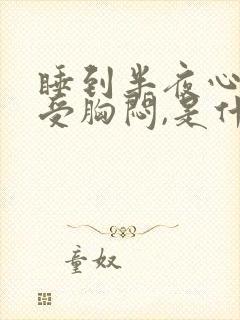 睡到半夜心
受胸闷,是什
童奴